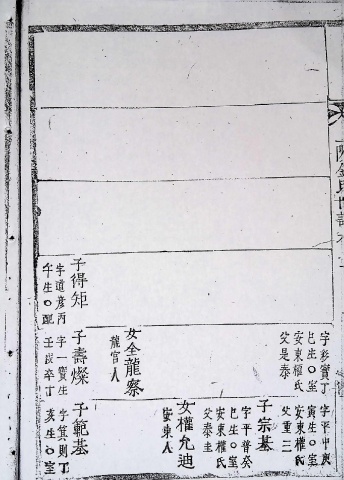 字彦寶丁
巳生○室
安東權氏
父是泰
女全龍察
龍宮人
子得矩
字道彦丙
午生○配
子壽燦
字一寶生
壬戌卒丁
字平中庚
寅生○室
安東權氏
父重三
子宗基
字平普癸
巳生○室
安東權氏
父泰圭
女權允迪
安東人
子範基
字箕則丁
亥生○室